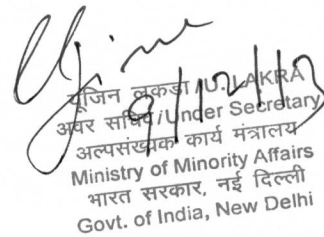 यूजिन लकड़ा /U. LAKRA
अवर सचिव/Under Secretary
9/12/13
अल्पसंख्यक कार्य मंत्रालय
Ministry of Minority Affairs
भारत सरकार, नई दिल्ली
Govt. of India, New Delhi